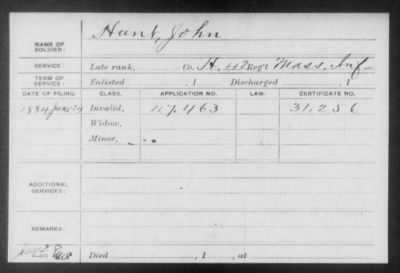 Hunt, John
NAME OF
SOLDIER:
SERVICE: Late rank, Co. H, Regt Mass, Inf
TERM OF
SERVICE: Enlisted , 1 Discharged , 1
DATE OF FILING. CLASS. APPLICATION NO. LAW. CERTIFICATE NO.
1884 June 24 Invalid, 117,463 31,256
Widow,
Minor,
ADDITIONAL
SERVICES:
REMARKS:
Died , 1 , at